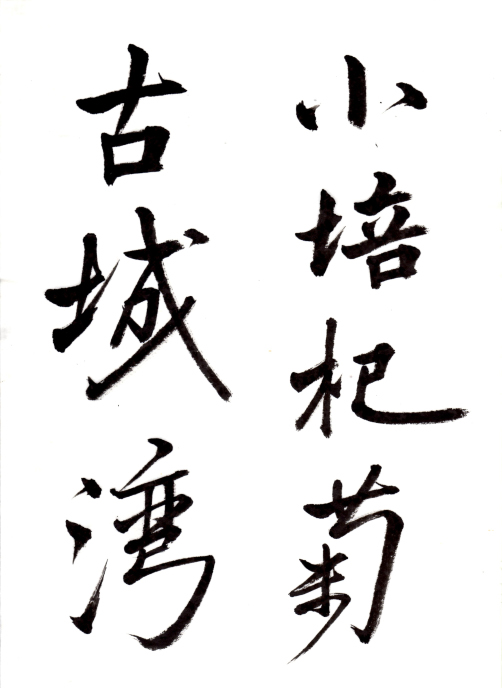 小培杞菊
古城湾